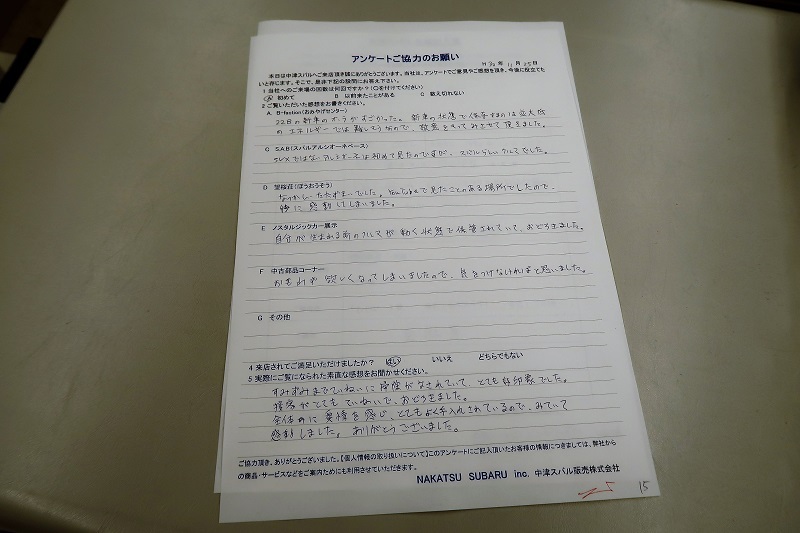 アンケートご協力のお願い
H30年 11月 25日
本日は中津スバルへご来店頂き誠にありがとうございます。当社は、アンケートでご意見やご感想を頂き、今後に役立てた
いと存じます。そこで、是非下記の設問にお答え下さい。
1 当社へのご来場の回数は何回ですか?(○を付けてください)
A 初めて B は前来たことがある C 数え切れない
2 ご覧いただいた感想をお書きください。
A、B-faction(おおやけセンター)
22Bの新車のオーラがすごかった。新車の状態で保存するのは並大抵
のエネルギーでは難しそうなので、敬意をもってみさせて頂きました。
C SAB(スバルアルシオーネベース)
SVXではないアルシオーネは初めて見たのですが、スバルらしいクルマでした。
D 望桜荘(ぼうおうそう)
なつかしいたたずまいでした。YouTubeで見たことのある場所でしたので、
特に感動してしまいました。
E ノスタルジックカー展示
自分が生まれる前のクルマが動く状態で保管されていて、おどろきました。
F 中古部品コーナー
おもわず欲しくなってしまいましたので、気をつけなければと思いました。
G その他
4 来店されてご満足いただけましたか? はい いいえ どちらでもない
5 実際にご覧になられた素直な感想をお聞かせください。
すみずみまでていねいに掃除がなされていて、とても好印象でした。
接客がとてもていねいで、おどろきました。
全体的に愛情を感じ、とてもよく手入れされているので、みていて
感動しました。ありがとうございました。
ご協力頂き、ありがとうございました。【個人情報の取り扱いについて】このアンケートにご記入頂いたお客様の情報につきましては、弊社から
の商品・サービスなどをご案内ためにも利用させていただきます。
NAKATSU SUBARU inc. 中津スバル販売株式会社
15